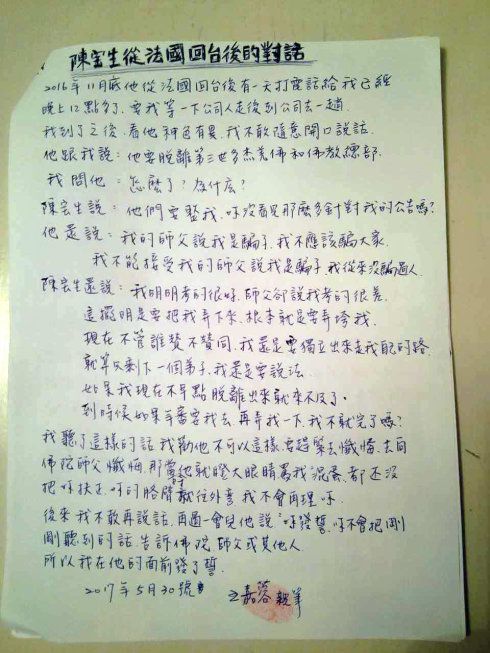 陳宝生從法國回台後的對話
2016年11月底他從法國回台後有一天打電話給我已經
晚上12點多了,要我等一下公司人走後到公司去一趟.
我到了之後,看他神色有異,我不敢隨意開口說話.
他跟我說:他要脫離第三世多杰羌佛和佛教總部.
我問他:怎麼了?為什么?
陳宝生說:他們要整我.你沒看見那麼多針對我的公告嗎?
他還說:我的師父說我是騙子,我不應該騙大家.
我不能接受我的師父說我是騙子,我從來沒騙過人.
陳宝生還說:我明明考的很好,師父卻說我考的很差.
這擺明是要把我弄下來.根本就是要弄垮我.
現在不管誰贊不贊同,我還是要獨立出來走我自己的路.
就算只剩下一個弟子,我還是要說法.
如果我現在不早點脫離出來就來不及了.
到時候如果主審要我去,再弄我一下,我不就完了嗎?
我聽了這樣的話,我勸他不可以這樣,要趕緊去懺悔,去向
佛陀師父懺悔,那當時他就瞪大眼睛罵我混蛋.都還沒
把你扶正,你的胳膊就往外彎,我不會再理你.
後來我不敢再說話,再過一會兒他說"你發誓,你不會把剛
剛聽到的話,告訴佛陀師父或其他人
所以我在他的面前發了誓.
2017年5月30號
嘉蓉 親筆